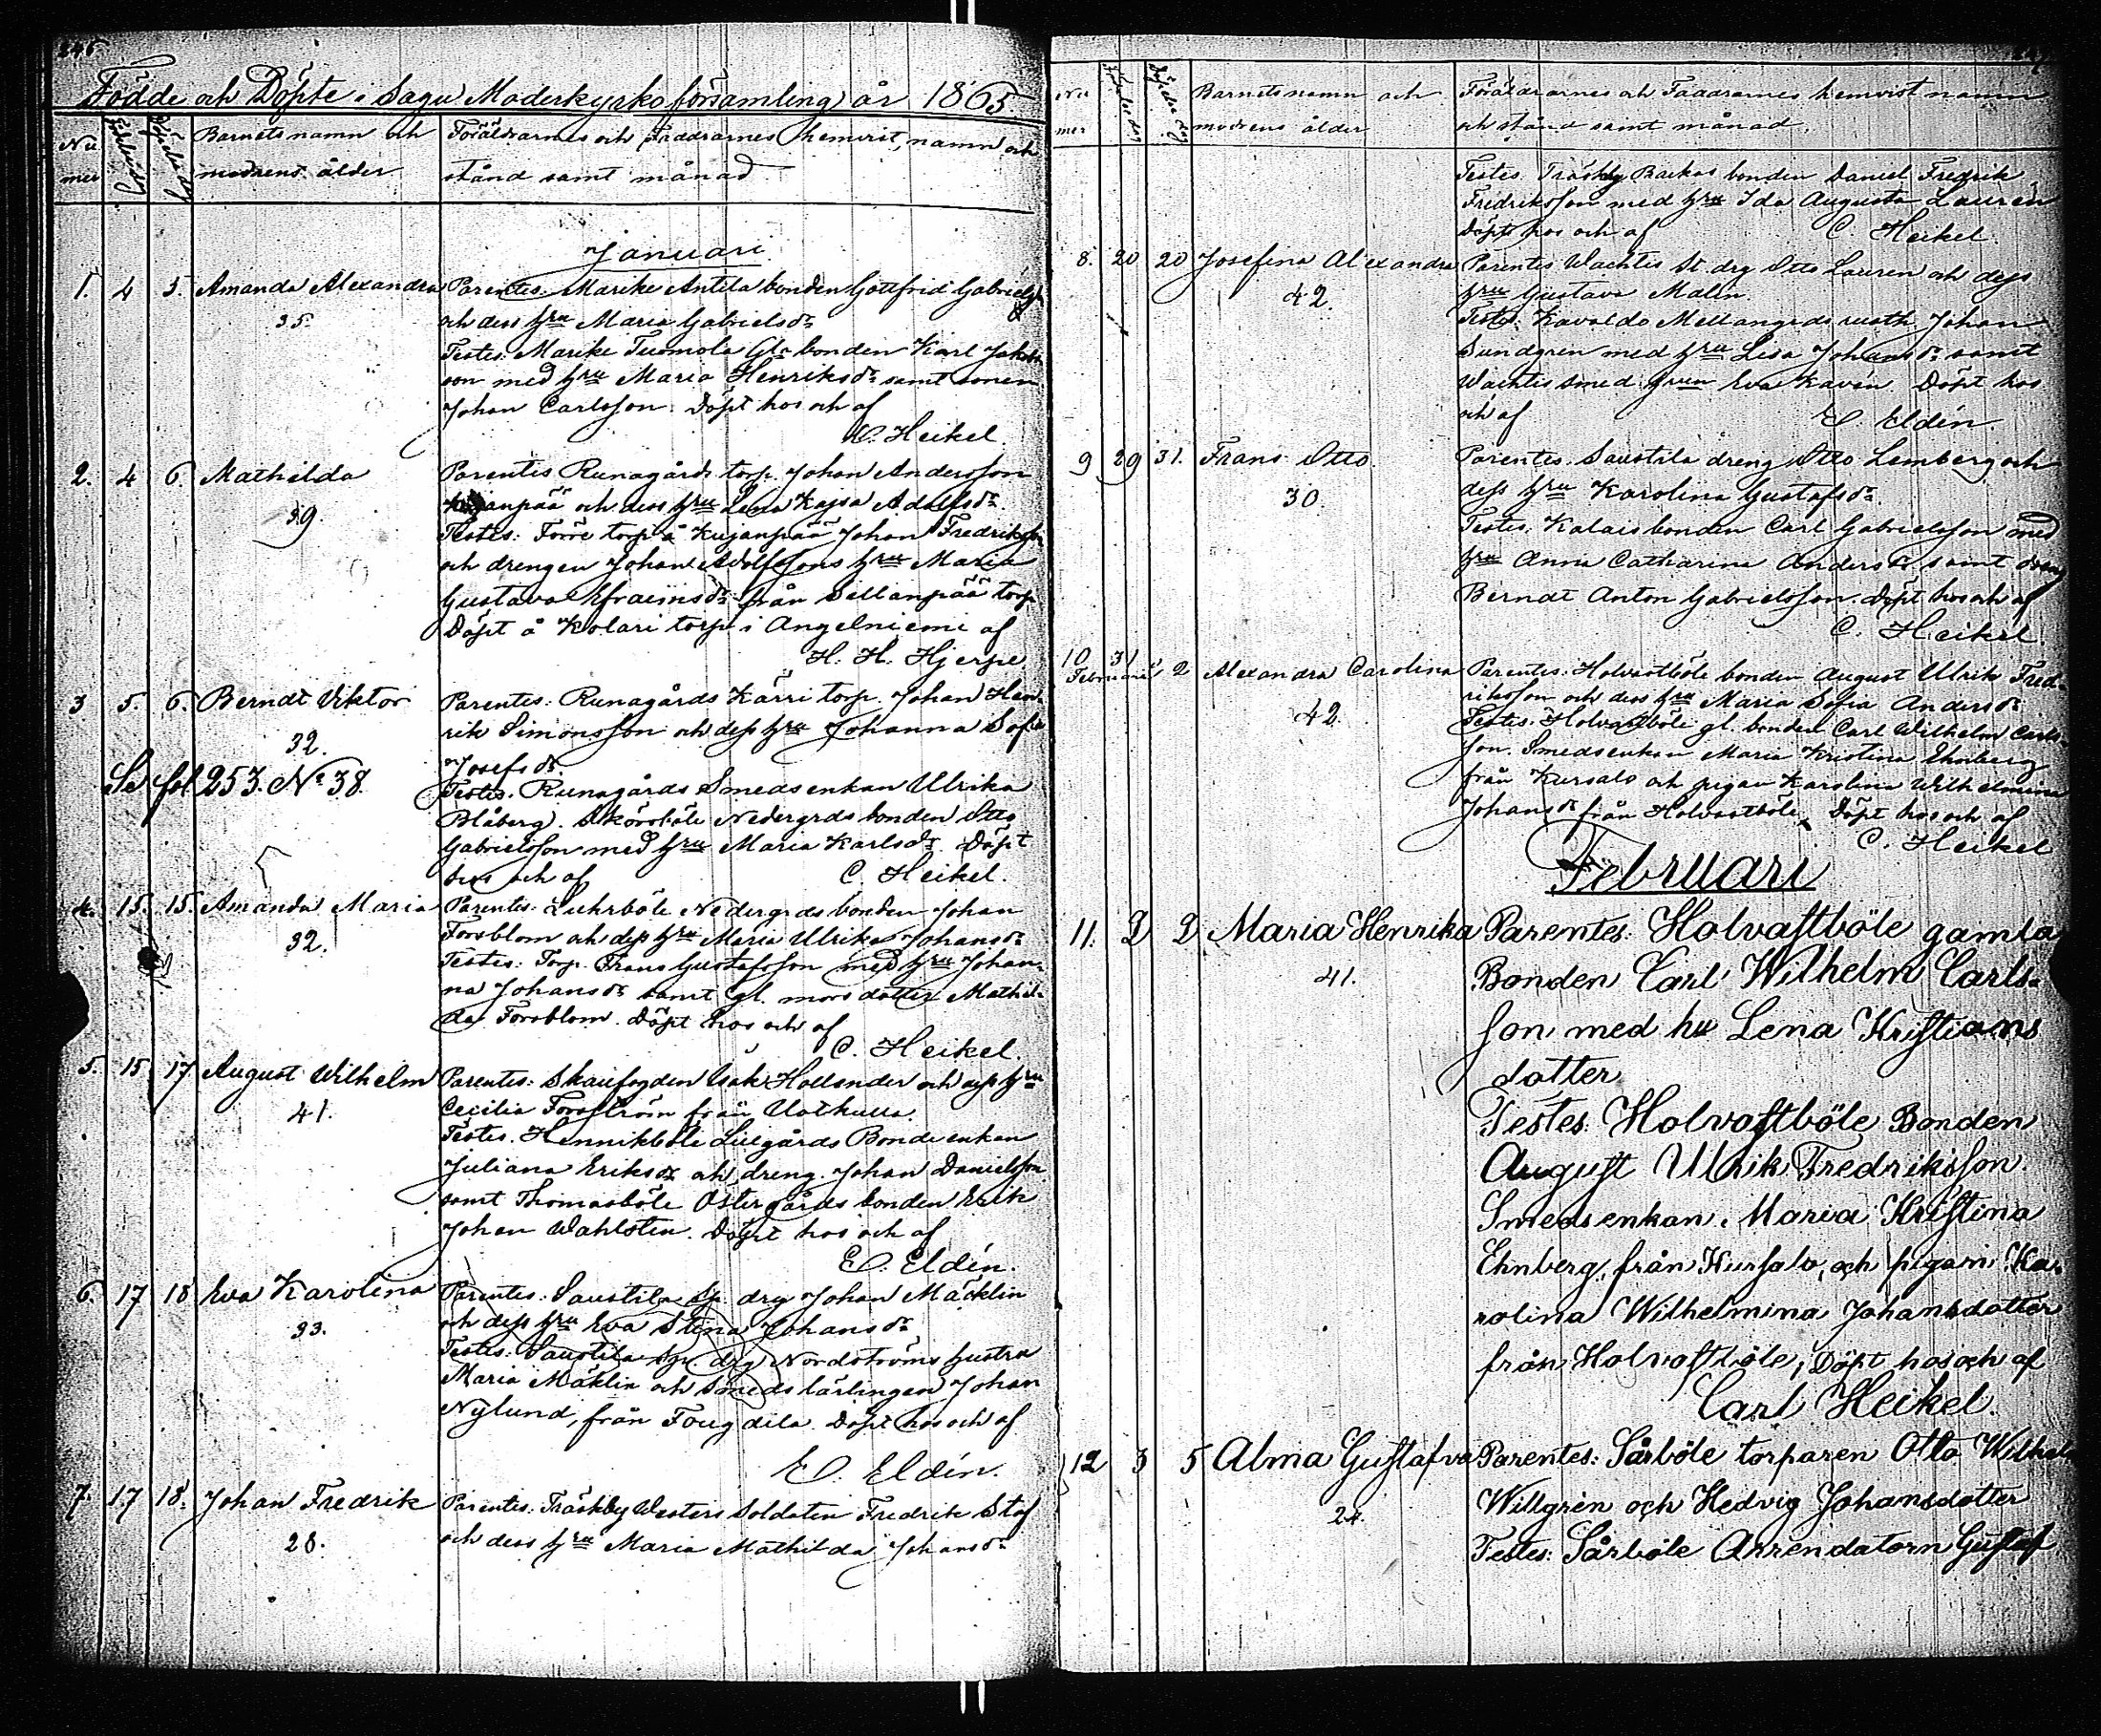 246
Födde och Döpte i Sagu Moderkyrko församling år 1865
Nu
mer
Födelsedag
Döpelsedag
Barnets namn och
modrens ålder
Föräldrarnes och Faddrarnes hemvist, namn och
stånd samt månad
Januari
1. 4 5. Amanda Alexandra
35.
Parentes. Marike Antila bonden Gottfrid Gabrielss
och dess hru Maria Gabrielsdr
Testes. Marike Tuomola Gla bonden Karl Jakobs
son med hru Maria Henriksdr samt sonen
Johan Carlsson. Döpt hos och af
C. Heikel.
2. 4 6. Mathilda
39.
Parentes Runagårds torp. Johan Andersson
Kujanpää och dess hru Lena Kajsa Adolfsdr.
Testes: Förre torp. å Kujanpää Johan Fredriksson
och drengen Johan Adolfssons hru Maria
Gustava Efraimsdr från Sillanpää torp
Döpt å Kolari torp i Angelniemi af
H. H. Hjerpe.
3 5. 6. Berndt Viktor
32.
Se fol 253. No 38.
Parentes: Runagårds Kärri torp. Johan Hen-
rik Simonsson och dess hru Johanna Sofia
Josefsdr.
Testes. Runagårds Smedsenkan Ulrika
Blåberg. Skörsböle Nedergrds bonden Otto
Gabrielsson med hru Maria Karlsdr. Döpt
hos och af
C. Heikel.
4. 15. 15. Amanda Maria
32.
Parentes: Luhrböle Nedergrds bonden Johan
Forsblom och dess hru Maria Ulrika Johansdr
Testes: Torp. Frans Gustafsson med hru Johan-
na Johansdr samt gl. mors dotter Mathil-
da Forsblom. Döpt hos och af
C. Heikel.
5. 15 17 August Wilhelm
41.
Parentes: Skaufogden Isak Hollender och dess hru
Cecilia Forsström från
Testes. Hennikböle Lillgårds Bonde enkan
Juliana Eriksdr och dreng. Johan Danielsson
samt Thomasböle Östergårds bonden Erik
Johan Wahlsten. Döpt hos och af
E. Eldén.
6. 17 18 Eva Karolina
33.
Parentes: Saustila Sp. drg Johan Mäcklin
och dess hru Eva Stina Johansdr
Testes: Saustila Sp. drg Nordströms hustru
Maria Mäklin och smeds lärlingen Johan
Nylund, från Fougdila. Döpt hos och af
E. Eldén.
7. 17 18. Johan Fredrik
28.
Parentes: Träskby Westers Soldaten Fredrik Staf
och dess hru Maria Mathilda Johansdr
Nu
mer
Födelsedag
Döpelsedag
Barnets namn och
modrens ålder
Föräldrarnes och Faddrarnes hemvist namn
och stånd samt månad.
Testes. Träskby Backas bonden Daniel Fredrik
Fredriksson med hru Ida Augusta Laurén
Döpt hos och af
C. Heikel.
8. 20 20 Josefina Alexandra
42.
Parentes Wachtis St. drg Otto Lauren och dess
hru Gustava Malin.
Testes. Kavaldo Mellangrds rusth. Johan
Sundgren med hru Lisa Johansdr samt
Wachtis smed gren Eva Kavén. Döpt hos
och af
E. Eldén.
9 29 31. Frans Otto.
30.
Parentes. Saustila dreng Otto Lemberg och
dess hru Karolina Gustafsdr.
Testes. Kalais bonden Carl Gabrielsson med
hru Anna Catharina Andersdr samt dreng
Berndt Anton Gabrielsson. Döpt hos och af
C. Heikel.
10 31
Februarii 2 Alexandra Carolina
42.
Parentes: Holvastböle bonden August Ulrik Fred-
riksson och dess hru Maria Sofia Andersdr
Testes. Holvastböle gl. bonden Carl Wilhelm Carls-
son. Smedsenkan Maria Kristina Ehnberg
från Kursalo och pigan Karolina Wilhelmina
Johansdr från Holvastböle. Döpt hos och af
C. Heikel
Februari
11. 2 2 Maria Henrika
41.
Parentes: Holvastböle gamla
Bonden Carl Wilhelm Carls-
son med hu Lena Kristians
dotter
Testes: Holvastböle Bonden
August Ulrik Fredriksson.
Smedsenkan, Maria Kristina
Ehnberg, från Kursalo, och pigan Ka-
rolina Wilhelmina Johansdotter
från Holvastböle, Döpt hos och af
Carl Heikel.
12 3 5 Alma Gustafva
24.
Parentes: Sårböle torparen Otto Wilhelm
Willgrén och Hedvig Johansdotter
Testes: Sårböle Arrendatorn Gustaf